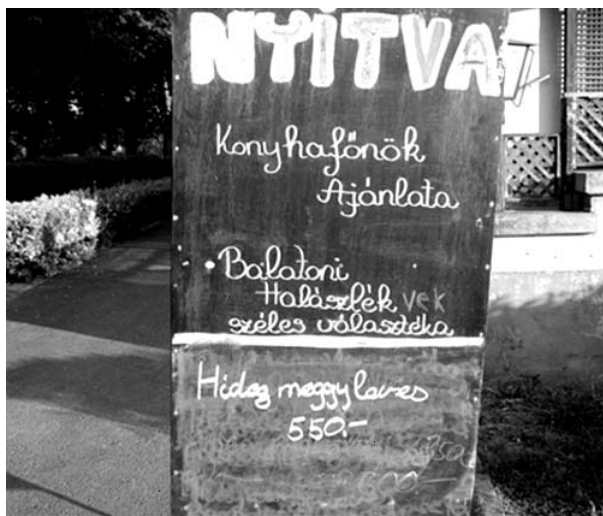 NYITVA
Konyhafőnök
Ajánlata
Balatoni
Halászlék vek
széles választéka
Hideg meggy leves
550.-